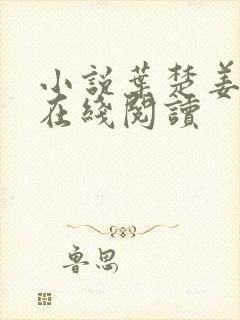 小説葉楚姜
在綫閱讀
魯思